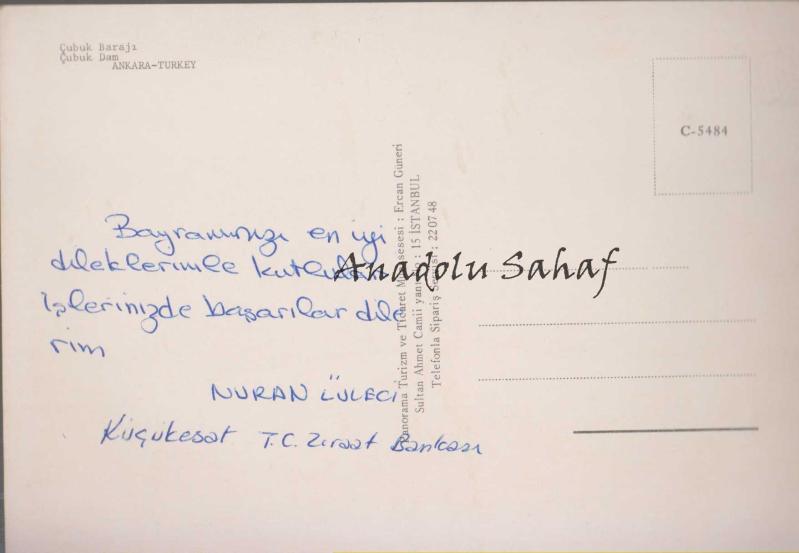 Çubuk Barajı
Çubuk Dam
ANKARA-TURKEY
C-5484
Bayramınızı en iyi
dileklerimle kutlular
İşlerinizde başarılar dile
rim
NURAN LÜLECİ
Küçükesat T.C. Ziraat Bankası
Panorama Turizm ve Ticaret : Ercan Güneri
Sultan Ahmet Camii yanı : 15 İSTANBUL
Telefonla Sipariş : 22 07 48
Anadolu Sahaf